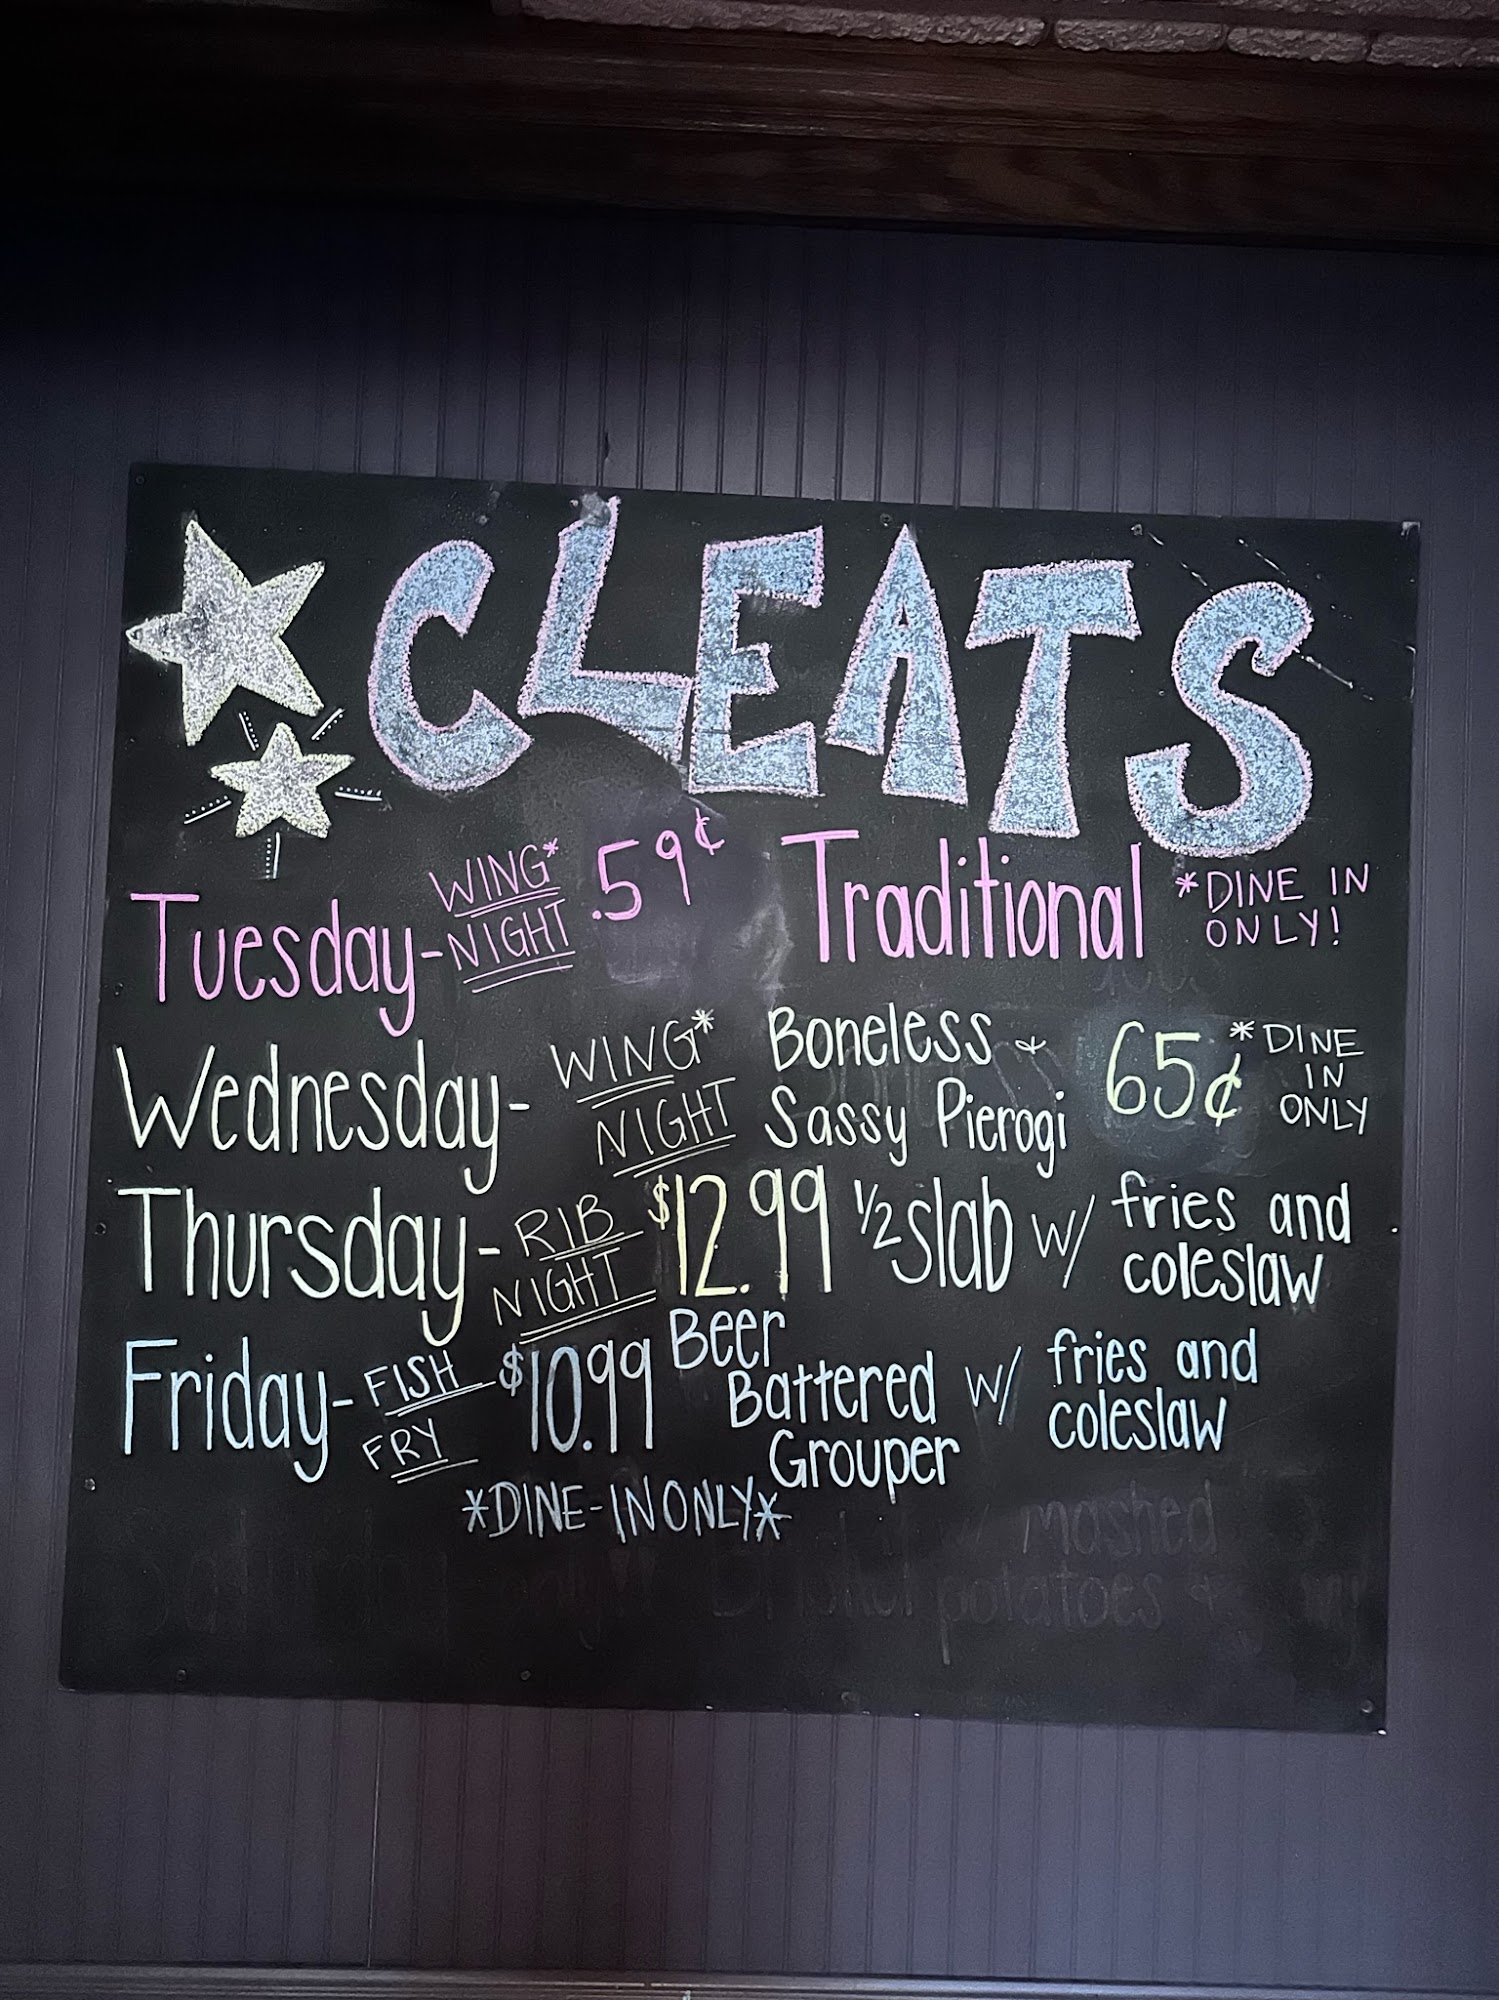 CLEATS
Tuesday- WING* NIGHT .59¢ Traditional *DINE IN ONLY!
Wednesday- WING* NIGHT Boneless & Sassy Pierogi 65¢ *DINE IN ONLY
Thursday- RIB NIGHT $12.99 1/2 slab w/ fries and coleslaw
Friday- FISH FRY $10.99 Beer Battered Grouper w/ fries and coleslaw
*DINE-IN ONLY*
Saturday mashed
potatoes